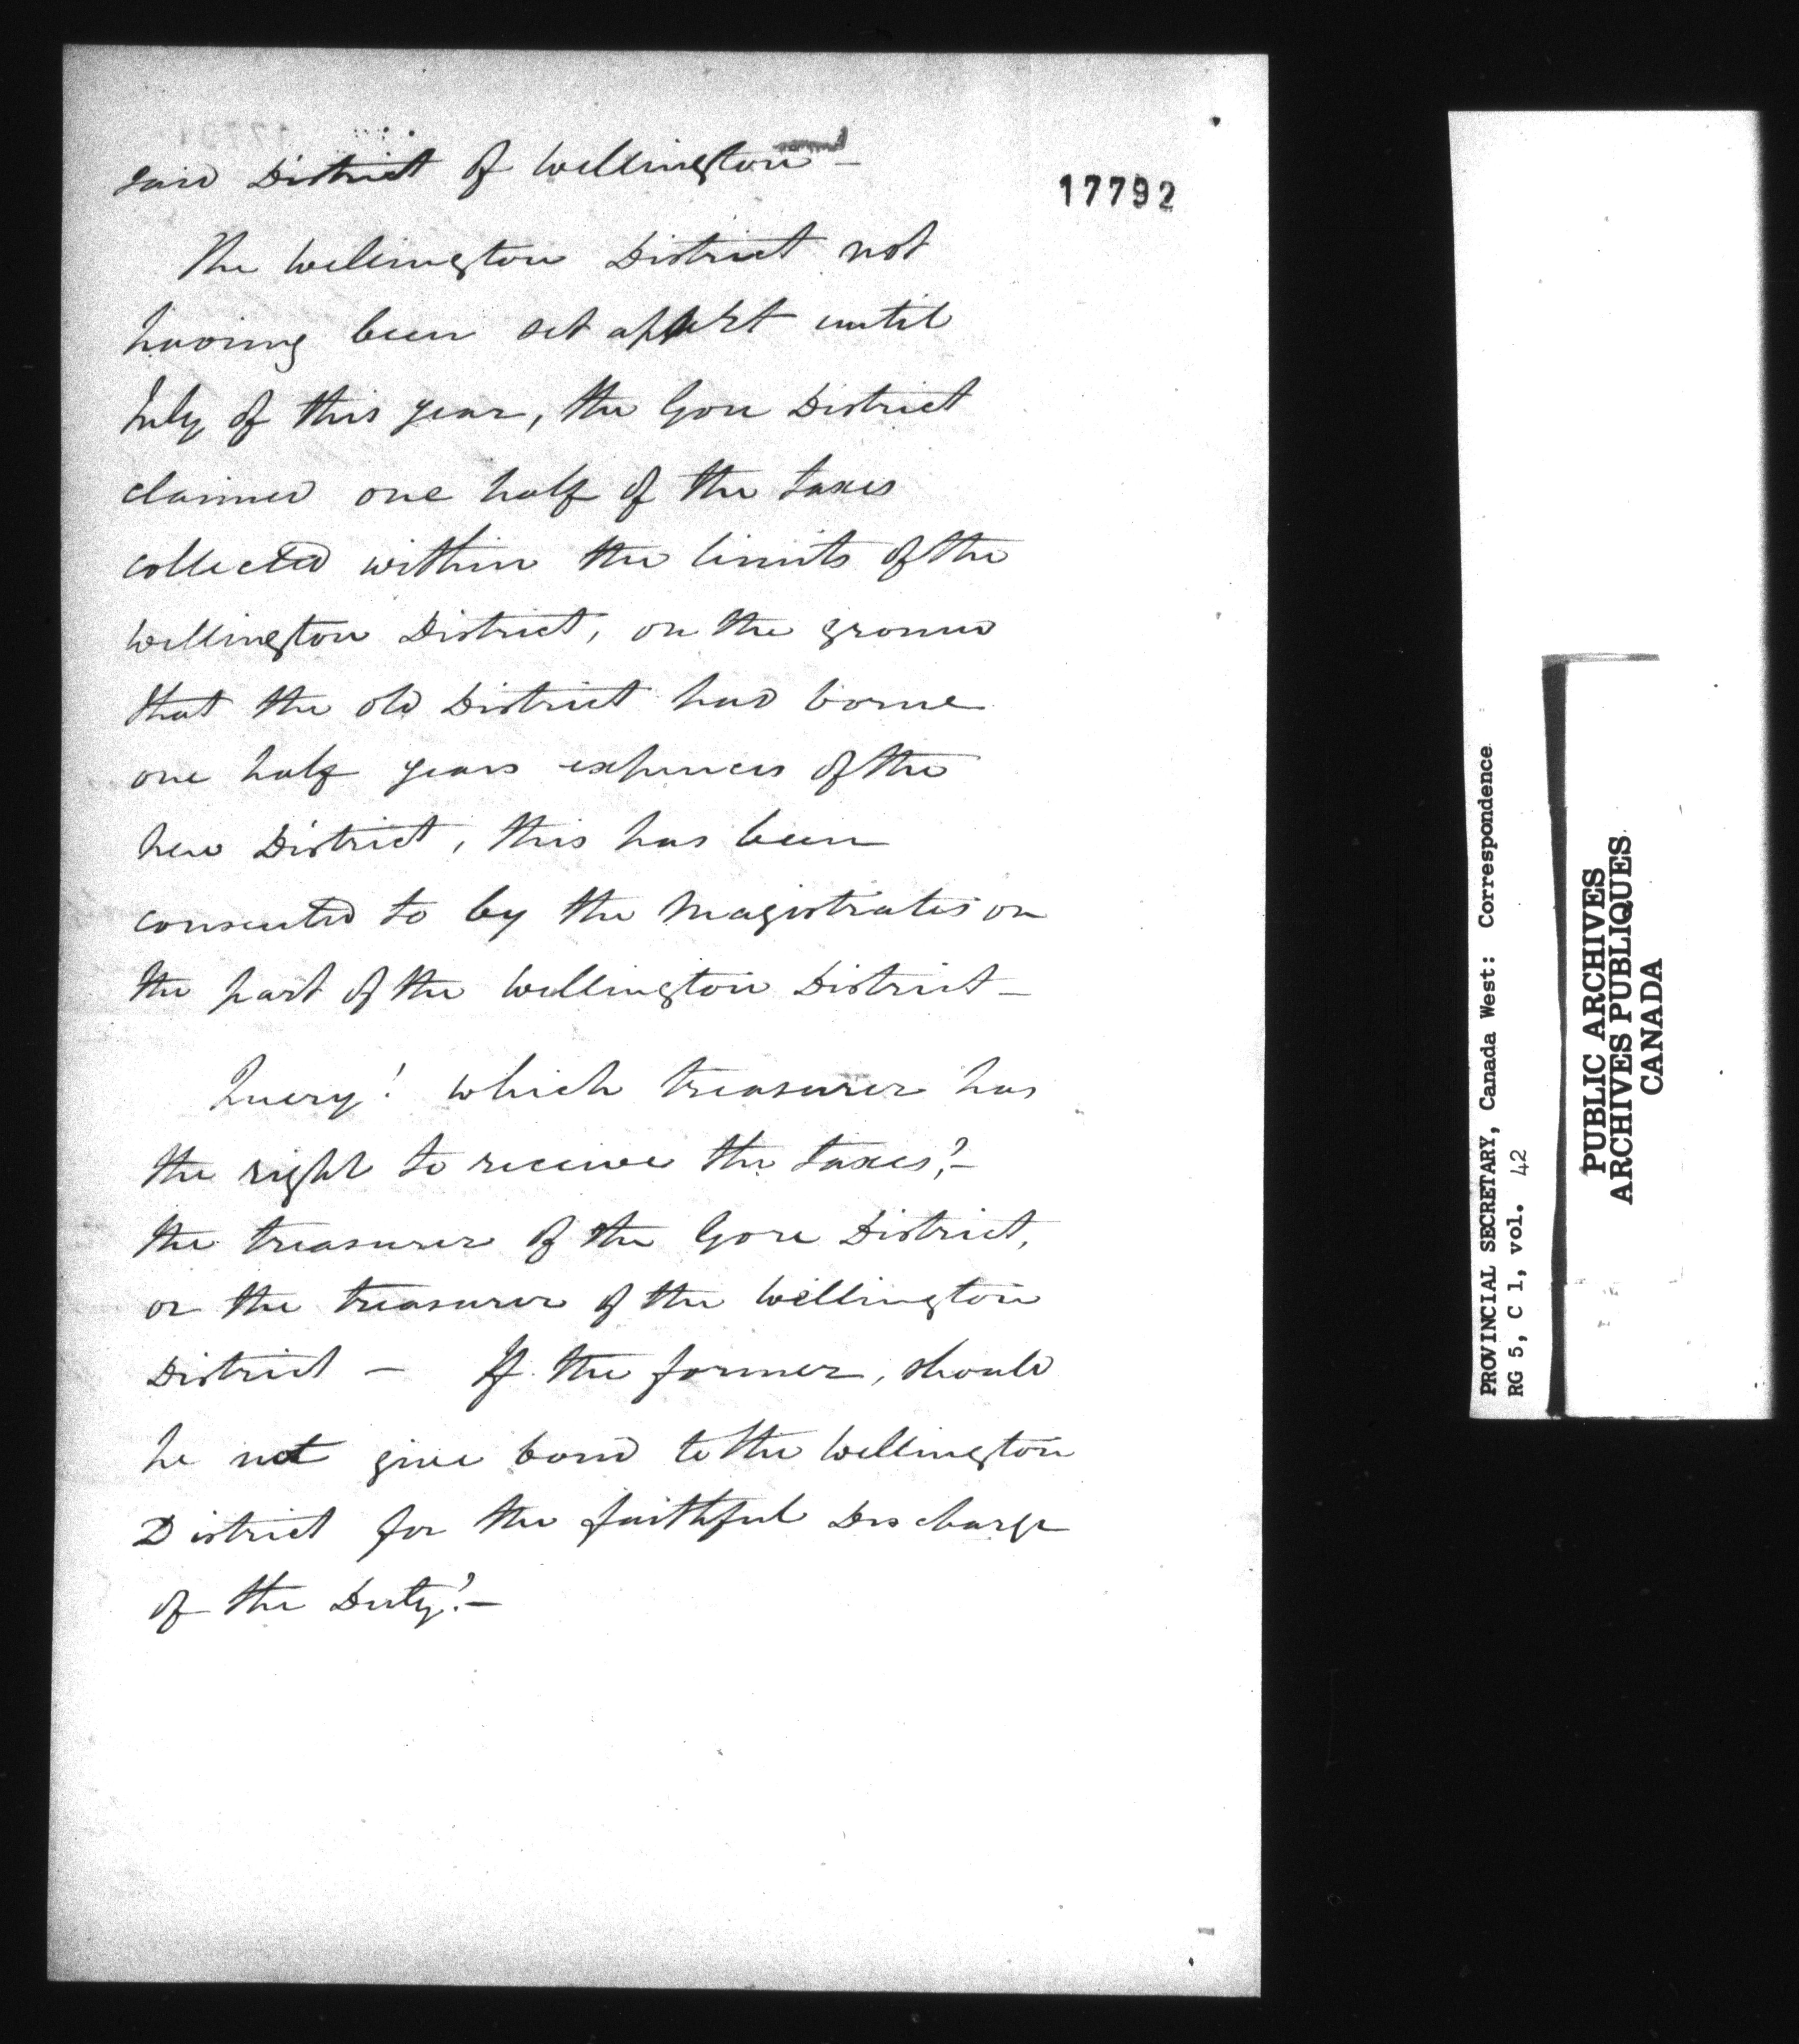 said District of Wellington –
17792
The Wellington District not
having been set apart until
July of this year, the Gore District
claimed one half of the taxes
collected within the limits of the
Wellington District, on the ground
that the old District had borne
one half years expences of the
new District, this has been
consented to by the Magistrates on
the part of the Wellington District –
Query! which treasurer has
the right to receive the taxes? –
the treasurer of the Gore District,
or the treasurer of the Wellington
District – If the former, should
he not give bond to the Wellington
District for the faithful Discharge
of the Duty? –
PROVINCIAL SECRETARY, Canada West: Correspondence
RG 5, C 1, vol. 42
PUBLIC ARCHIVES
ARCHIVES PUBLIQUES
CANADA